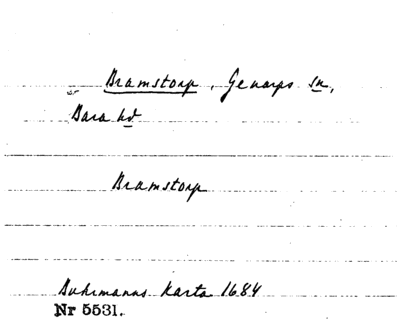 Bramstorp, Genarps sn,
Bara hd
Bramstorp
Buhrmanns Karta 1684
Nr 5531.